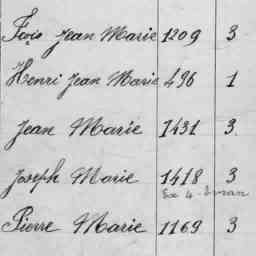 Fois Jean Marie 1209 3
Henri Jean Marie 496 1
Jean Marie 1431 3
Joseph Marie 1418 3
Pierre Marie 1169 3